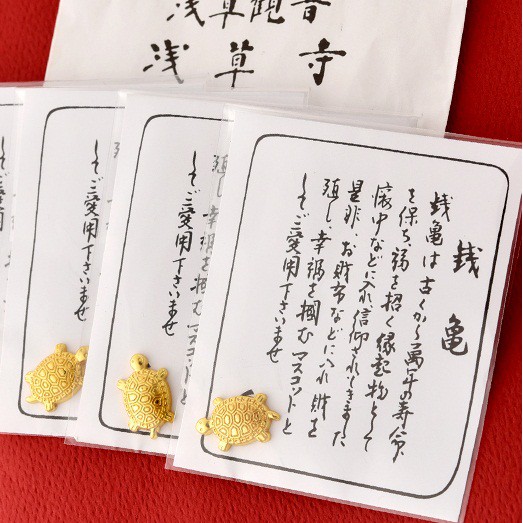 浅草観音
浅草寺
銭亀
銭亀は古くから萬年の寿命
を保ち福を招く縁起物として
懐中などに入れ信仰されてきました
是非、お財布などに入れ財を
殖し、幸福を掴むマスコットと
してご愛用下さいませ
してご愛用下さいませ
してご愛用下さいませ